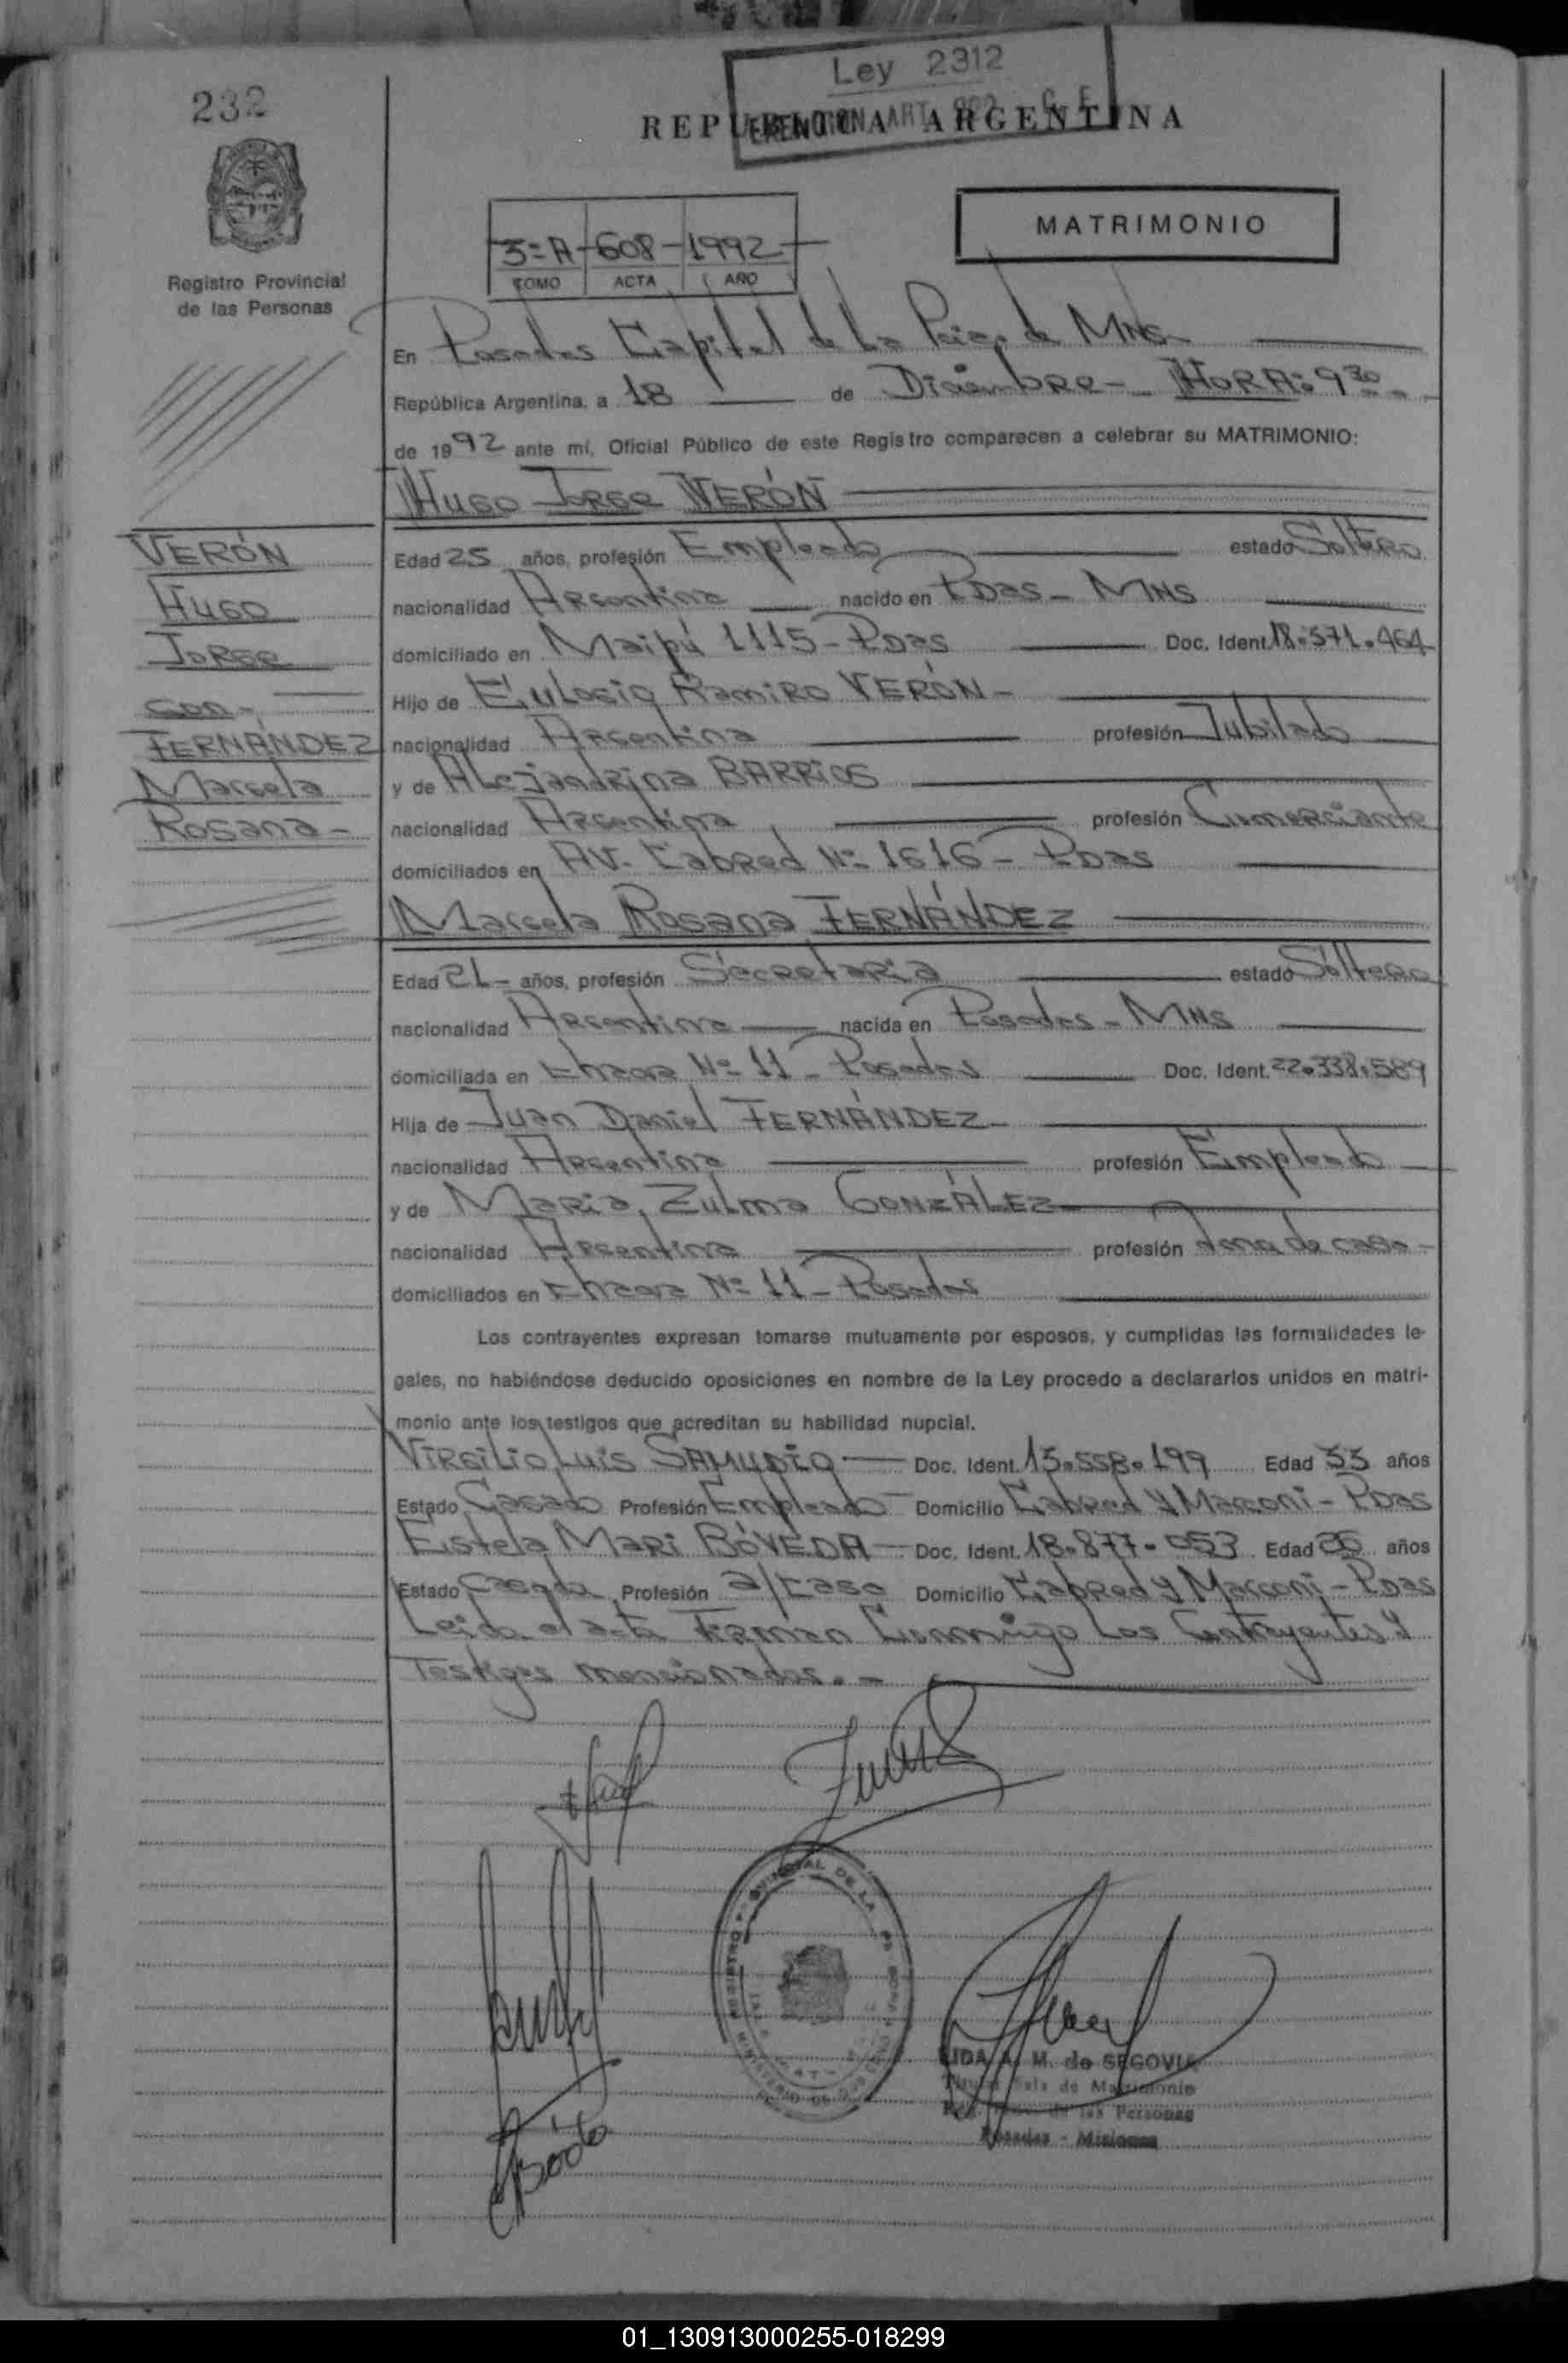 232
Ley 2312
REPUBLICA ARGENTINA
MATRIMONIO
3=A - 608 - 1992
TOMO ACTA AÑO
Registro Provincial
de las Personas
En Posadas Capital de La Pcia. de Mns-
República Argentina, a 18 de Diciembre - HORA: 9 30
de 1992 ante mí, Oficial Público de este Registro comparecen a celebrar su MATRIMONIO:
Hugo Jorge VERÓN
VERÓN
Hugo
Jorge
con-
FERNÁNDEZ
Marcela
Rosana-
Edad 25 años, profesión Empleado estado Soltero
nacionalidad Argentina nacido en Pdas- Mns
domiciliado en Maipú 1115- Pdas Doc. Ident. 18.571.464
Hijo de Eulogio Ramiro VERÓN-
nacionalidad Argentina profesión Jubilado
y de Alejandrina BARRIOS
nacionalidad Argentina profesión Comerciante
domiciliados en AV. Cabred Nº 1616- Pdas
Marcela Rosana FERNÁNDEZ
Edad 21- años, profesión Secretaria estado Soltera
nacionalidad Argentina nacida en Posadas- Mns
domiciliada en Chacra Nº 11- Posadas Doc. Ident. 22.338.589
Hija de Juan Daniel FERNÁNDEZ-
nacionalidad Argentina profesión Empleado
y de María Zulma GONZÁLEZ
nacionalidad Argentina profesión Ama de casa-
domiciliados en Chacra Nº 11- Posadas
Los contrayentes expresan tomarse mutuamente por esposos, y cumplidas las formalidades le-
gales, no habiéndose deducido oposiciones en nombre de la Ley procedo a declararlos unidos en matri-
monio ante los testigos que acreditan su habilidad nupcial.
Virgilio Luis SAMUDIO Doc. Ident. 13.558.199 Edad 33 años
Estado Casado Profesión Empleado Domicilio Cabred y Marconi- Pdas
Estela Mari BÓVEDA Doc. Ident. 18.877.053 Edad años
Estado Casada Profesión a/casa Domicilio Cabred y Marconi- Pdas
Leida el acta Firman Conmigo Los Contrayentes y
Testigos mencionados.-
LIDA A. M. de SEGOVIA
Sala de Matrimonio
de las Personas
Posadas - Misiones
01_130913000255-018299